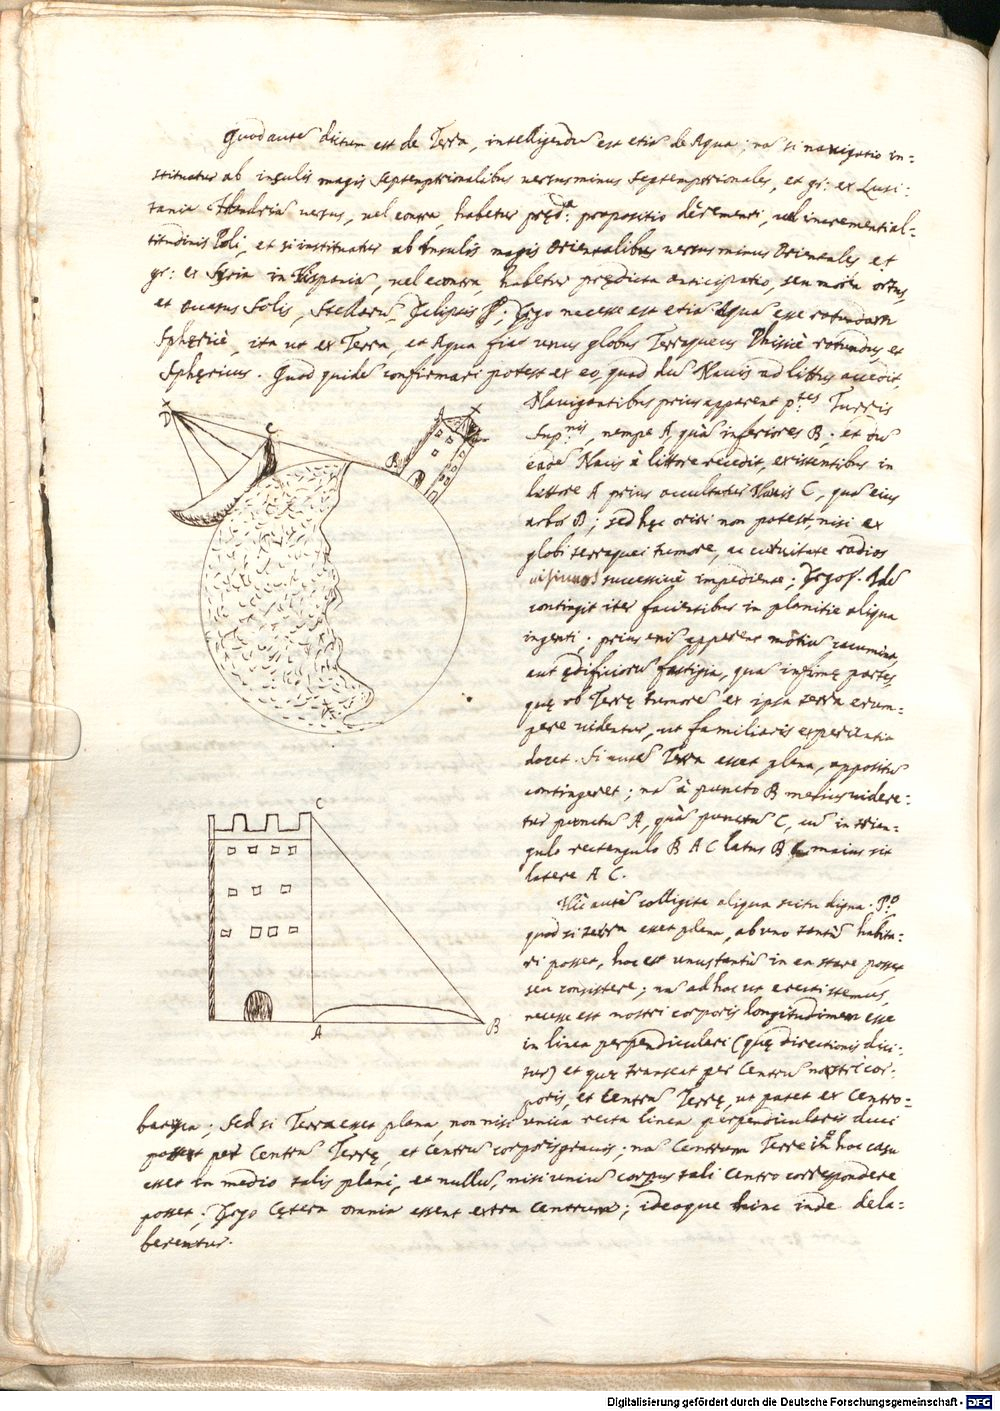 Quod autē dictum est de Terra, intelligendū est etiā de Aqua; nā si navigatio in=
stituatur ab insulis magis septemptrionalibus versus minus septemptrionales, et gr: ex Lusi=
tania versus, vel contra, habetur propositio decrementi, vel incrementi al=
titudinis Poli, et si instituatur ab Insulis magis Orientalibus versus minus Orientales et
gr: ex Syria in Hispaniā, vel econtra, habetur prędicta anticipatio, seu mora ortus,
et occasus Solis, Stellarū, Eclipsis; Ergo necesse est etiā Aquā esse rotundam
Sphęricè, ita ut ex Terra, et Aqua fiat unus globus Terraqueus Phisicè rotundus, et
Sphęricus. Quod quidē confirmari potest ex eo, quod dū Navis ad littus accedit,
Navigantibus prius apparent p.tes Turris
Sup.res, nempe A, quā inferiores B; et dū
eadē Navis à littore recedit, existentibus in
littore A prius occultatur Navis C, quā eius
arbor D; sed hęc oriri non potest, nisi ex
globi terraquei tumore, ac curvitate radios
visivos successivè impediente; Ergo. Idē
contingit iter facientibus in planitie aliqua
ingenti; prius enī apparent mōtiū cacumina,
aut ędificiorū fastigia, quā infimę partes,
quę ob Terrę tumorē ex ipsa terra erum=
pere videntur, ut familiaris experientia
docet. Si autē Terra esset plana, oppositū
contingeret; nā à puncto B melius videre=
tur punctū A, quā punctū C, cū in trian=
gulo rectangulo B A C latus B C maius sit
latere A C.
Hīc autē colligita aliqua scitu digna. P.º
quod si terra esset plana, ab uno tantū habita=
ri posset, hoc est unus tantū in ea stare posset
seu consistere; nā ad hoc ut erecti stemus,
necesse est nostri corporis longitudinem esse
in linea perpendiculari (quę directionis dici=
tur) et quę transeat per Centrū nostri cor=
poris, et Centrū Terrę, ut patet ex Centro=
barysa; Sed si Terra esset plana, non nisi unica recta linea perpendicularis duci
posset per Centrū Terrę, et Centrū corporis gravis; nā Centrum Terrę in hoc casu
esset in medio talis plani, et nullū, nisi unicū corpus tali Centro correspondere
posset; Ergo Cętera omnia essent extra Centrum; ideoque hinc inde dela=
berentur.
D
C
B
A
C
A
B
Digitalisierung gefördert durch die Deutsche Forschungsgemeinschaft - DFG